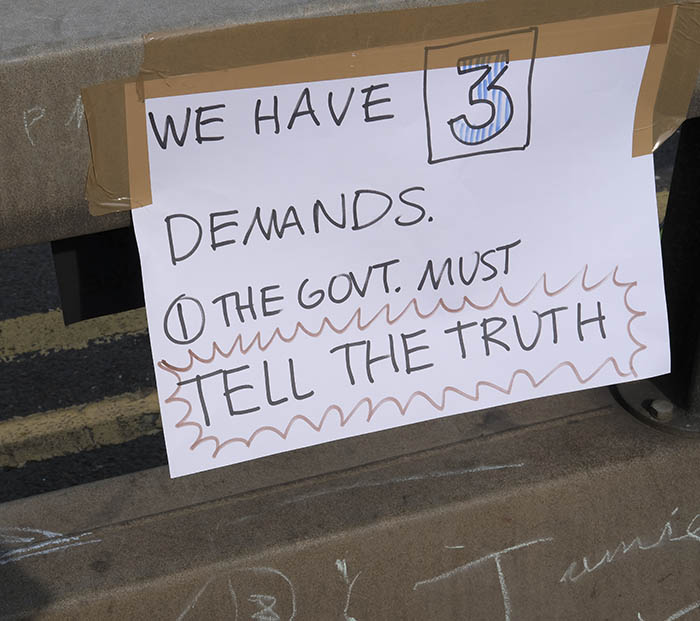 WE HAVE 3
DEMANDS.
① THE GOVT. MUST
TELL THE TRUTH